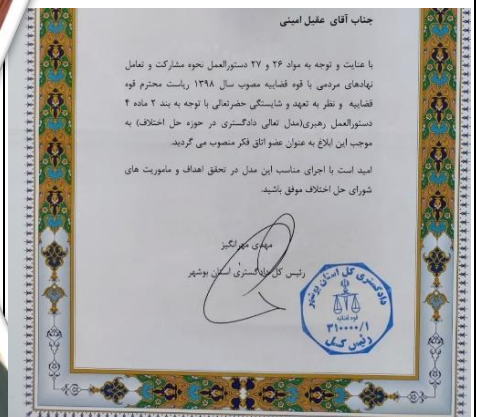 جناب آقای عقیل امینی
با عنایت و توجه به مواد ۲۶ و ۲۷ دستورالعمل نحوه مشارکت و تعامل
نهادهای مردمی با قوه قضاییه مصوب سال ۱۳۹۸ ریاست محترم قوه
قضاییه و نظر به تعهد و شایستگی حضرتعالی با توجه به بند ۲ ماده ۴
دستورالعمل رهبری(مدل تعالی دادگستری در حوزه حل اختلاف) به
موجب این ابلاغ به عنوان عضو اتاق فکر منصوب می گردید.
امید است با اجرای مناسب این مدل در تحقق اهداف و ماموریت های
شورای حل اختلاف موفق باشید.
مهدی مهرانگیز
رئیس کل دادگستری استان بوشهر
دادگستری کل استان بوشهر
قوه قضائیه
۳۱۰۰۰۰/۱
رئیس کل